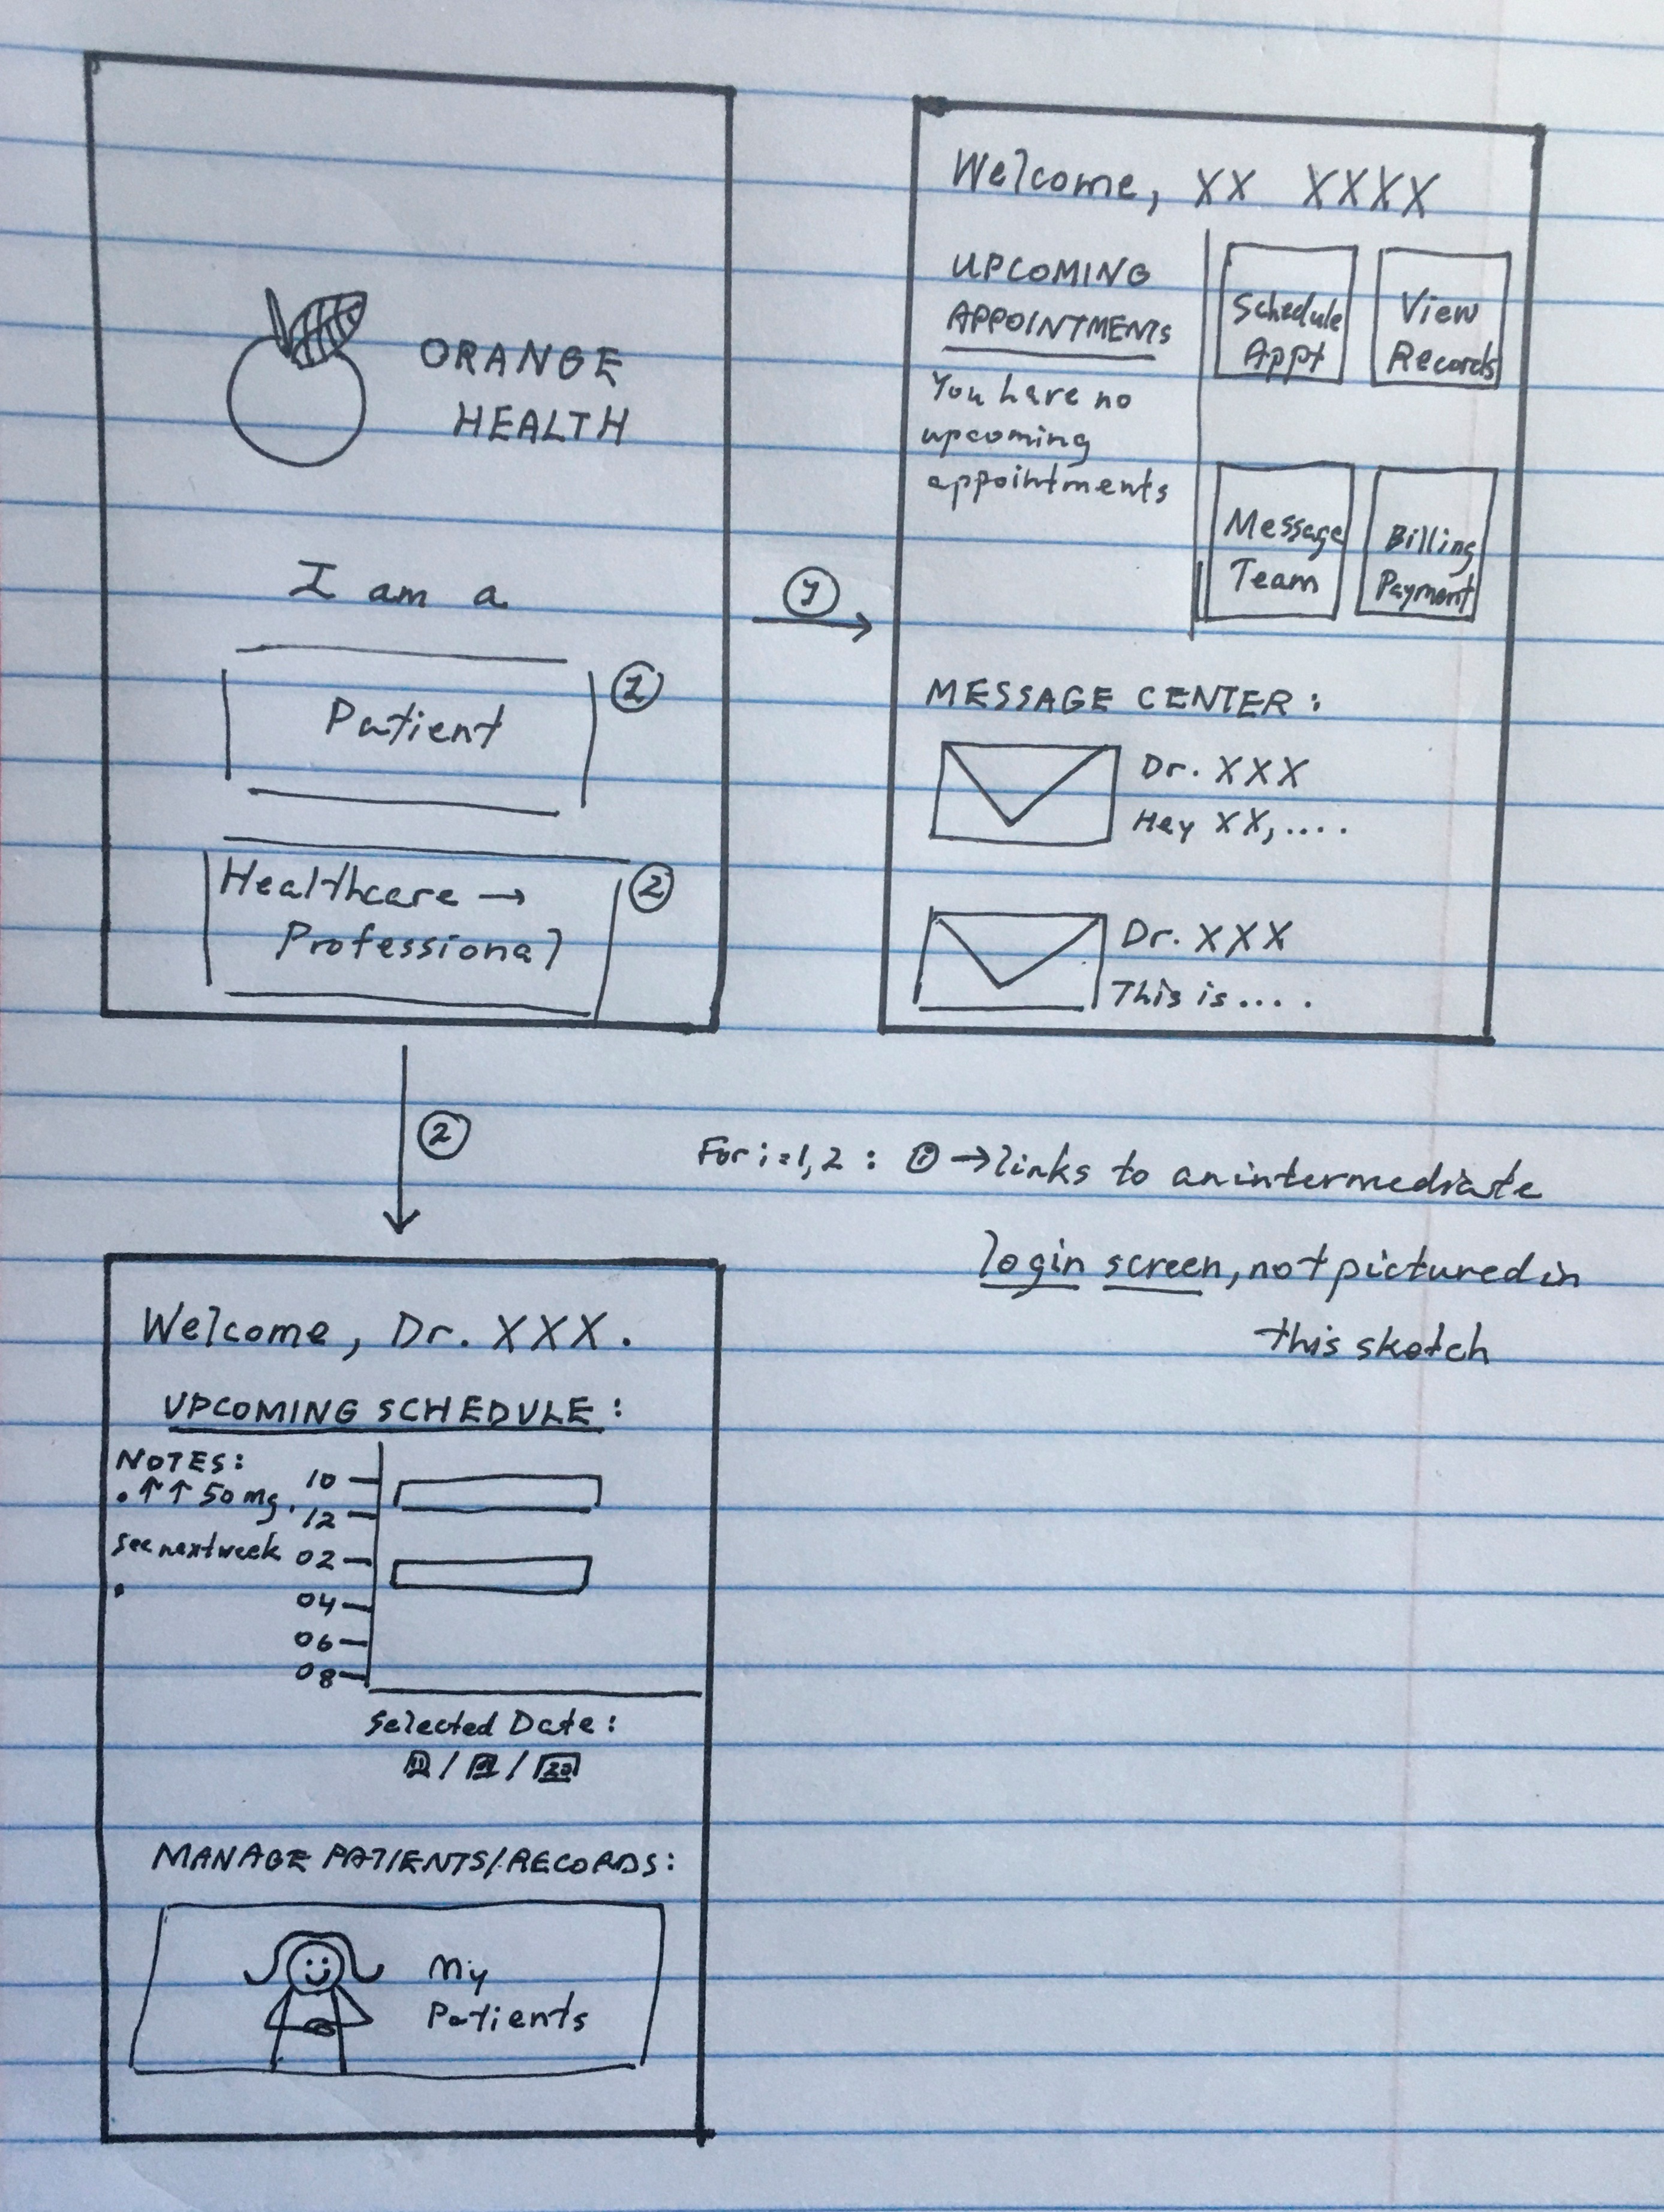 ORANGE
HEALTH
I am a
Patient
1
Healthcare →
Professional
2
1
Welcome, XX XXXX
UPCOMING
APPOINTMENTS
You have no
upcoming
appointments
Schedule
Appt
View
Records
Message
Team
Billing
Payment
MESSAGE CENTER:
Dr. XXX
Hey XX, ....
Dr. XXX
This is ....
2
For i=1,2 : ⓘ → links to an intermediate
login screen, not pictured in
this sketch
Welcome, Dr. XXX.
UPCOMING SCHEDULE:
NOTES:
• ↑↑ 50 mg.
see next week
•
10
12
02
04
06
08
Selected Date:
/ /
MANAGE PATIENTS/RECORDS:
My
Patients